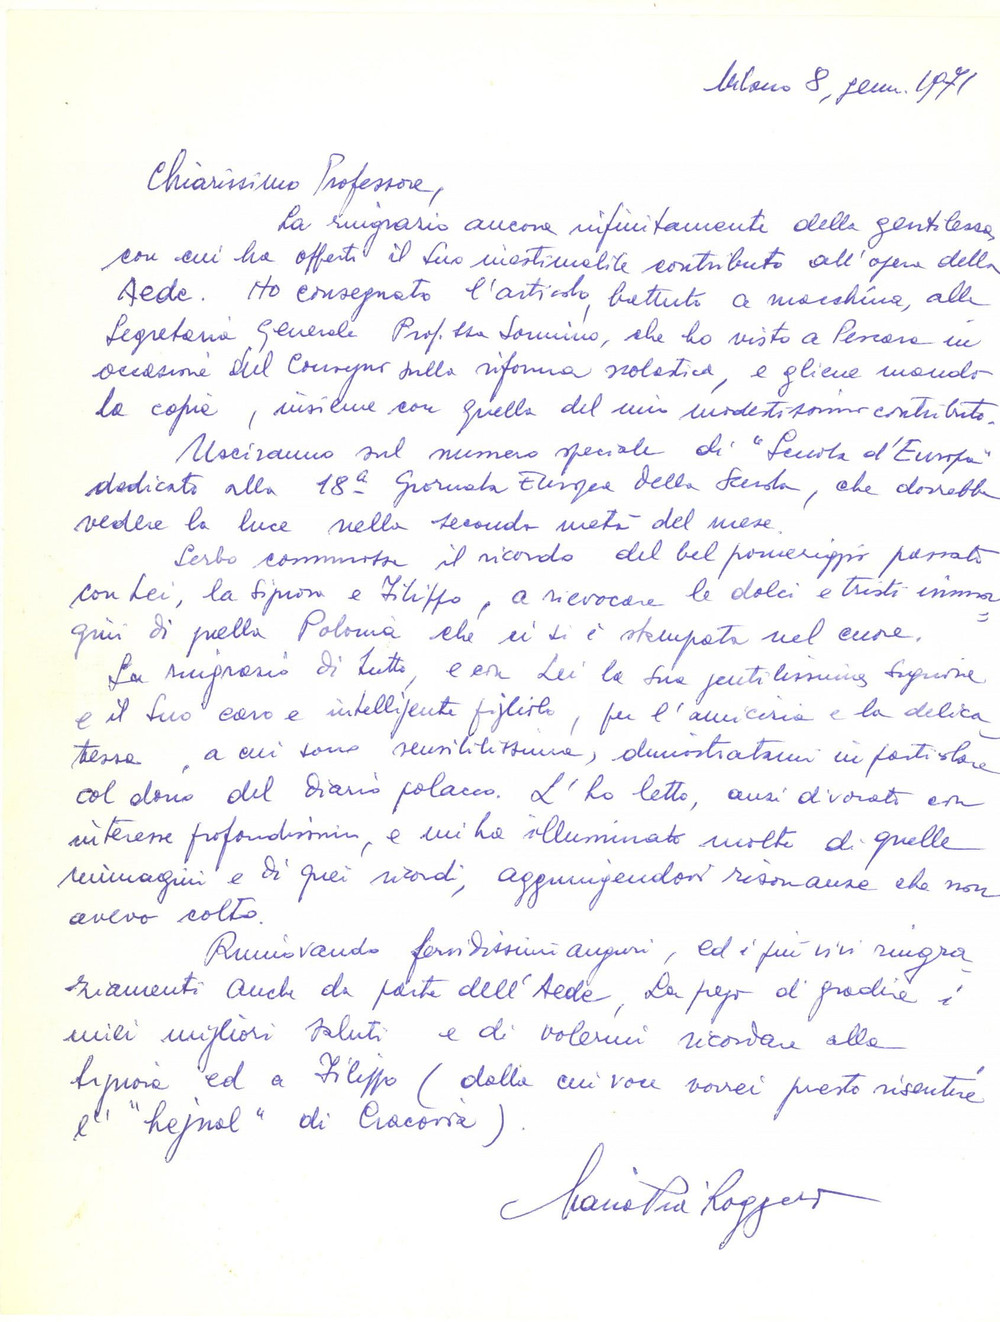 Milano 8, genn. 1971
Chiarissimo Professore,
La ringrazio ancora infinitamente della gentilezza
con cui ha offerto il Suo inestimabile contributo all'opera della
Aede. Ho consegnato l'articolo, battuto a macchina, alla
Segretaria Generale Prof.ssa Sonnino, che ho visto a Pescara in
occasione del Convegno sulla riforma scolastica, e gliene mando
la copia, insieme con quella del mio modestissimo contributo.
Usciranno sul numero speciale di "Scuola d'Europa"
dedicato alla 18ª Giornata Europea della Scuola, che dovrebbe
vedere la luce nella seconda metà del mese.
Serbo commossa il ricordo del bel pomeriggio passato
con Lei, la Signora e Filippo, a rievocare le dolci e tristi imma
gini di quella Polonia che ci si è stampata nel cuore.
La ringrazio di tutto, e con Lei la Sua gentilissima Signora
e il Suo caro e intelligente figliolo, per l'amicizia e la delica
tezza, a cui sono sensibilissima, dimostratami in particolare
col dono del diario polacco. L'ho letto, anzi divorato con
interesse profondissimo, e mi ha illuminato molte di quelle
immagini e di quei ricordi, aggiungendovi risonanze che non
avevo colto.
Rinnovando fervidissimi auguri, ed i più vivi ringra
ziamenti anche da parte dell'Aede, La prego di gradire i
miei migliori saluti e di volermi ricordare alla
Signora ed a Filippo (dalla cui voce vorrei presto risentire
l' "hejnal" di Cracovia).
Maria Pia Roggero